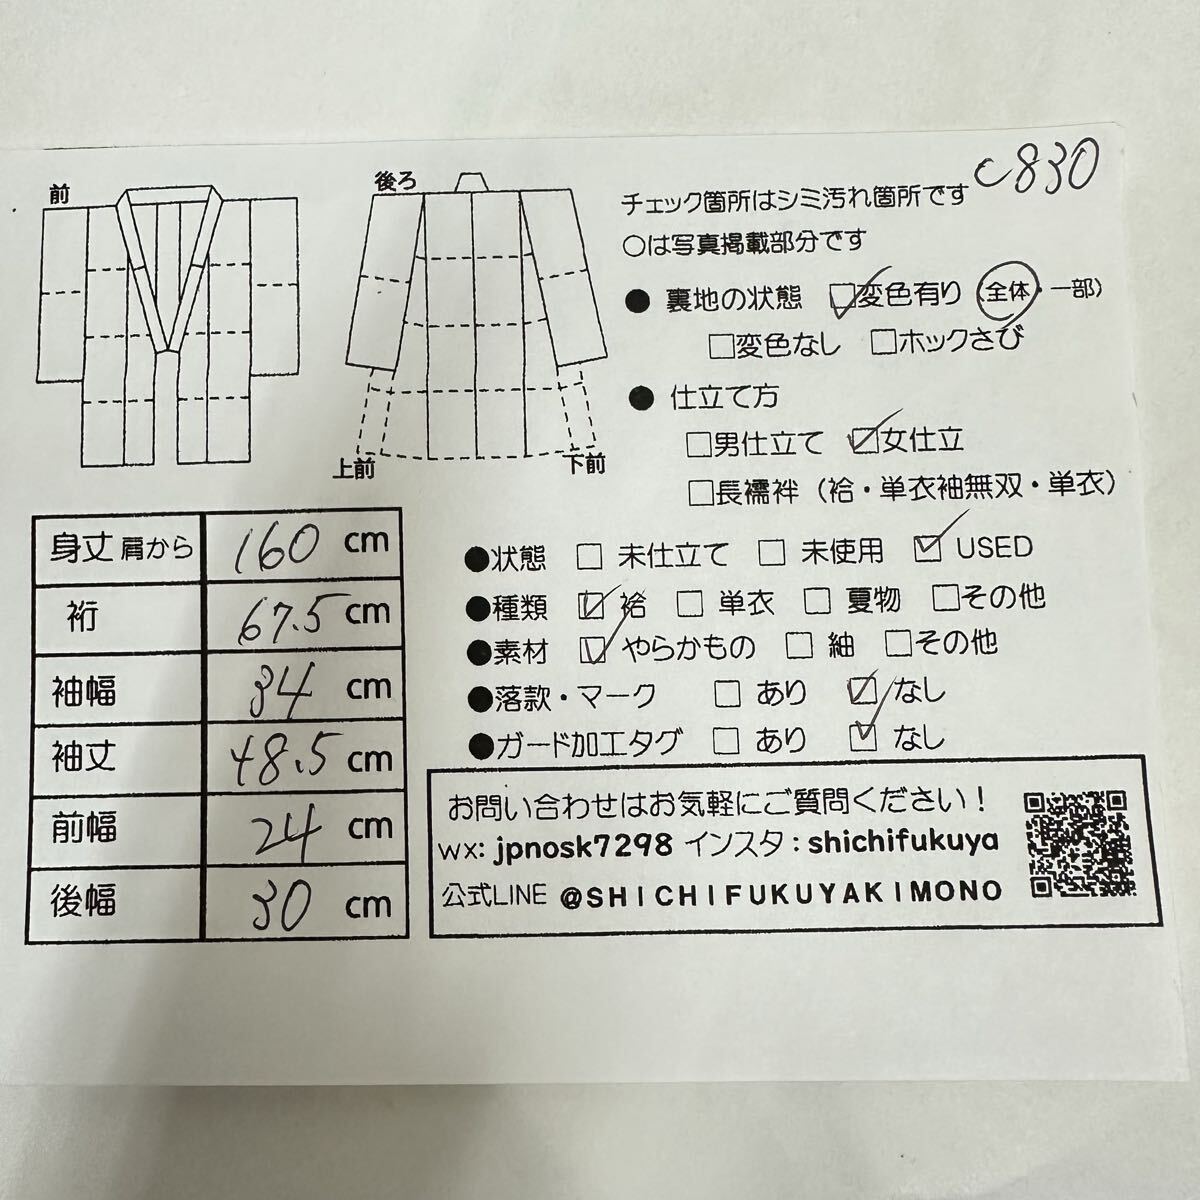 C830
前
後ろ
上前
下前
チェック箇所はシミ汚れ箇所です
○は写真掲載部分です
● 裏地の状態 ☑変色有り (全体・一部)
□変色なし □ホックさび
● 仕立て方
□男仕立て ☑女仕立
□長襦袢 (袷・単衣袖無双・単衣)
●状態 □ 未仕立て □ 未使用 ☑ USED
●種類 ☑ 袷 □ 単衣 □ 夏物 □その他
●素材 ☑ やらかもの □ 紬 □その他
●落款・マーク □ あり ☑ なし
●ガード加工タグ □ あり ☑ なし
身丈 肩から 160 cm
裄 67.5 cm
袖幅 34 cm
袖丈 48.5 cm
前幅 24 cm
後幅 30 cm
お問い合わせはお気軽にご質問ください！
wx: jpnosk7298 インスタ : shichifukuya
公式LINE @SHICHIFUKUYAKIMONO